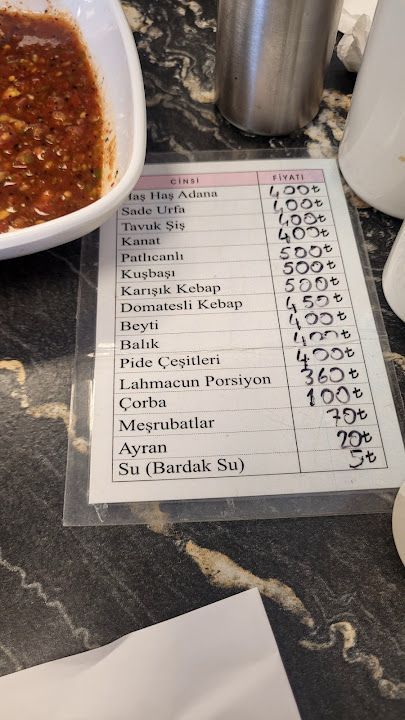 CİNSİ FİYATI
Haş Haş Adana 400₺
Sade Urfa 400₺
Tavuk Şiş 400₺
Kanat 400₺
Patlıcanlı 500₺
Kuşbaşı 500₺
Karışık Kebap 500₺
Domatesli Kebap 450₺
Beyti 400₺
Balık 400₺
Pide Çeşitleri 400₺
Lahmacun Porsiyon 360₺
Çorba 100₺
Meşrubatlar 70₺
Ayran 20₺
Su (Bardak Su) 5₺